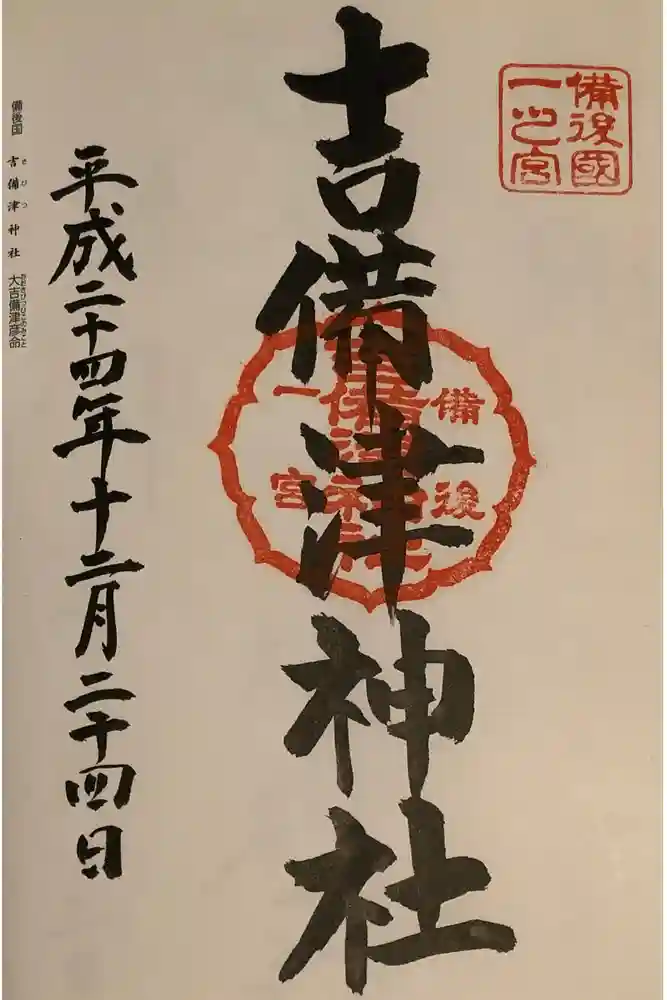 備後國
一之宮
吉備津神社
備後
一宮
平成二十四年十二月二十四日
備後国 吉備津神社 大吉備津彦命